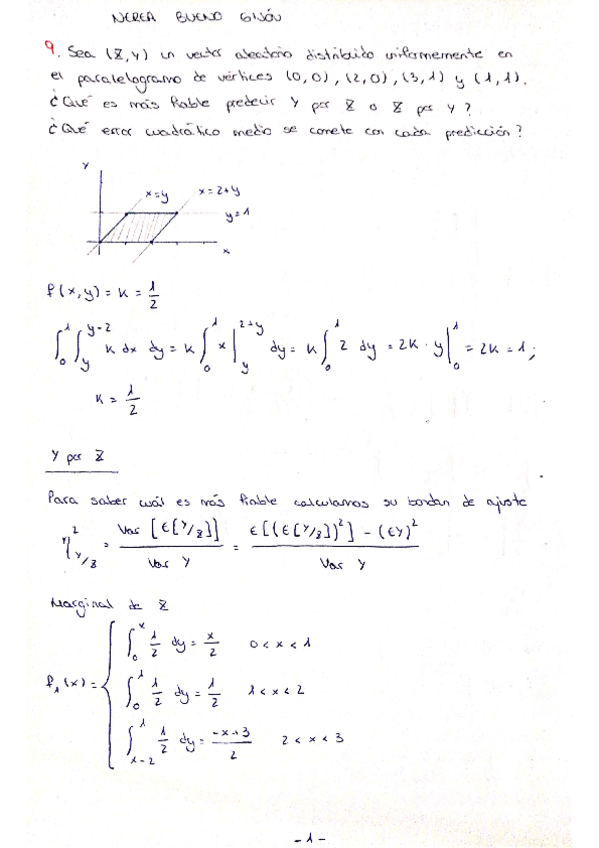 NEREA BUENO GIJÓN
9. Sea (X,Y) un vector aleatorio distribuido uniformemente en
el paralelogramo de vértices (0,0), (2,0), (3,1) y (1,1).
¿Qué es más fiable predecir Y por X o X por Y?
¿Qué error cuadrático medio se comete con cada predicción?
Y
x=y x=2+y
y=1
x
f(x,y) = k = 1/2
∫₀¹ ∫_y^{y-2} k dx dy = k ∫₀¹ x |_y^{2+y} dy = k ∫₀¹ 2 dy = 2k · y |₀¹ = 2k = 1;
k = 1/2
Y por X
Para saber cuál es más fiable calculamos su bondan de ajuste
η²_{Y/X} = Var [E[Y/X]] / Var Y = E[(E[Y/X])²] - (EY)² / Var Y
Marginal de X
f₁(x) = {
∫₀ˣ 1/2 dy = x/2 0 < x < 1
∫₀¹ 1/2 dy = 1/2 1 < x < 2
∫_{x-2}^1 1/2 dy = -x+3/2 2 < x < 3
- 1 -